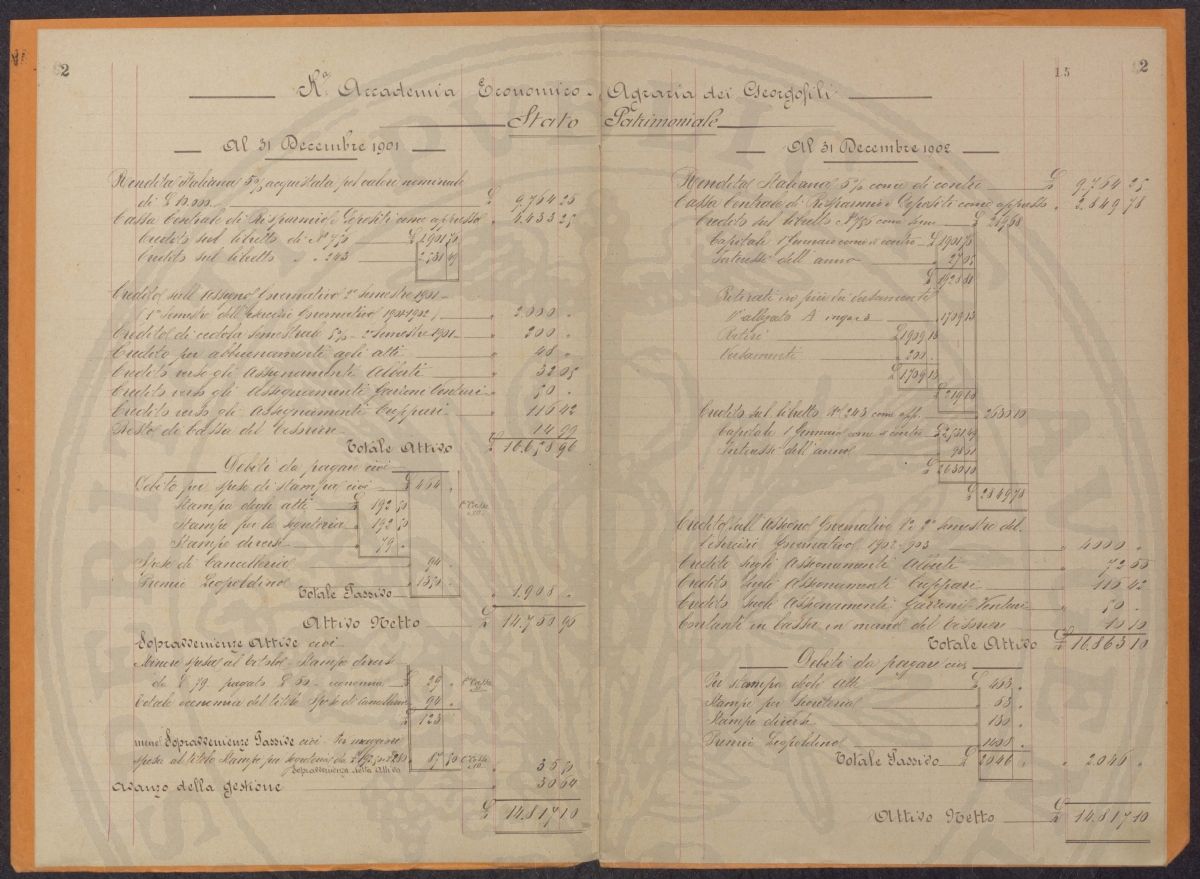 2
15 2
Rª Accademia Economico-Agraria dei Georgofili
Stato Patrimoniale
Al 31 Decembre 1901
Rendita Italiana 5% acquistata pel valore nominale
di £ 10.000 £ 9.764 25
Cassa Centrale di Risparmi e Depositi come appresso 2.433 25
Credito sul libretto di Nº £ 1.901 70
Credito sul libretto " " 243
Credito sull'Assegno Governativo 2º Semestre 1901
(1º Semestre dell'Esercizio Governativo 1901-1902) " 2000 "
Credito di cedola semestrale 5% - 2º Semestre 1901 " 200 "
Credito per abbuonamenti agli atti " 48 "
Credito verso gli Assegnamenti Alberti " 32 05
Credito verso gli Assegnamenti " 50 "
Credito verso gli Assegnamenti Cuppari " 116 42
Resto di Cassa del Tessiere " 14 99
Totale Attivo £ 16.658 96
Debiti da pagare cioè
Debito per spese di stampa cioè £ 464 "
Stampa degli atti £ 192 50
Stampe per la segreteria " 192 50
Stampe diverse " 79 "
Spese di Cancelleria " 94 "
Premio Leopoldino " 1350 "
Totale Passivo 1.908 "
Attivo Netto £ 14.750 96
Sopravvenienze Attive cioè
Minore spesa al titolo Stampe diverse
da £ 79 pagato £ 50 economia £ 29 "
Totale economia del titolo Spese di Cancelleria " 94 "
£ 123
meno Sopravvenienze Passive cioè Per maggiore
spesa al titolo Stampe per segreteria 87 50
Sopravvenienza netta Attiva 35 50
Avanzo della gestione " 30 64
£ 14.817 10
Al 31 Decembre 1902
Rendita Italiana 5% come di contro £ 9.764 25
Cassa Centrale di Risparmi e Depositi come appresso " 2.849 78
Credito sul libretto Nº £ 219 68
Capitale 1º Gennaio come di contro £ 1901 76
Interessi dell'anno " 27 05
£ 1928 81
Ritirati in più dei versamenti
Vº allegato A 1709 13
Ritiri £ 1909 13
Versamenti " 200 "
£ 1709 13
£ 219 68
Credito sul libretto Nº 243 come opp. " 2630 10
Capitale 1º Gennaio come di contro £ 2531 49
Interessi dell'anno " 98 61
£ 2630 10
£ 2849 78
Credito sull'Assegno Governativo 1º e 2º Semestre del
l'Esercizio Governativo 1902-903 " 4000 "
Credito sugli Assegnamenti Alberti " 72 55
Credito sugli Assegnamenti Cuppari " 116 42
Credito sugli Assegnamenti " 50 "
Contanti in Cassa in mano del Tessiere " 10 10
Totale Attivo £ 16.863 10
Debiti da pagare cioè
Per stampa degli Atti £ 453 "
Stampe per Segreteria " 53 "
Stampe diverse "
Premio Leopoldino " 1408 "
Totale Passivo £ 2046 " " 2.046 "
Attivo Netto £ 14.817 10